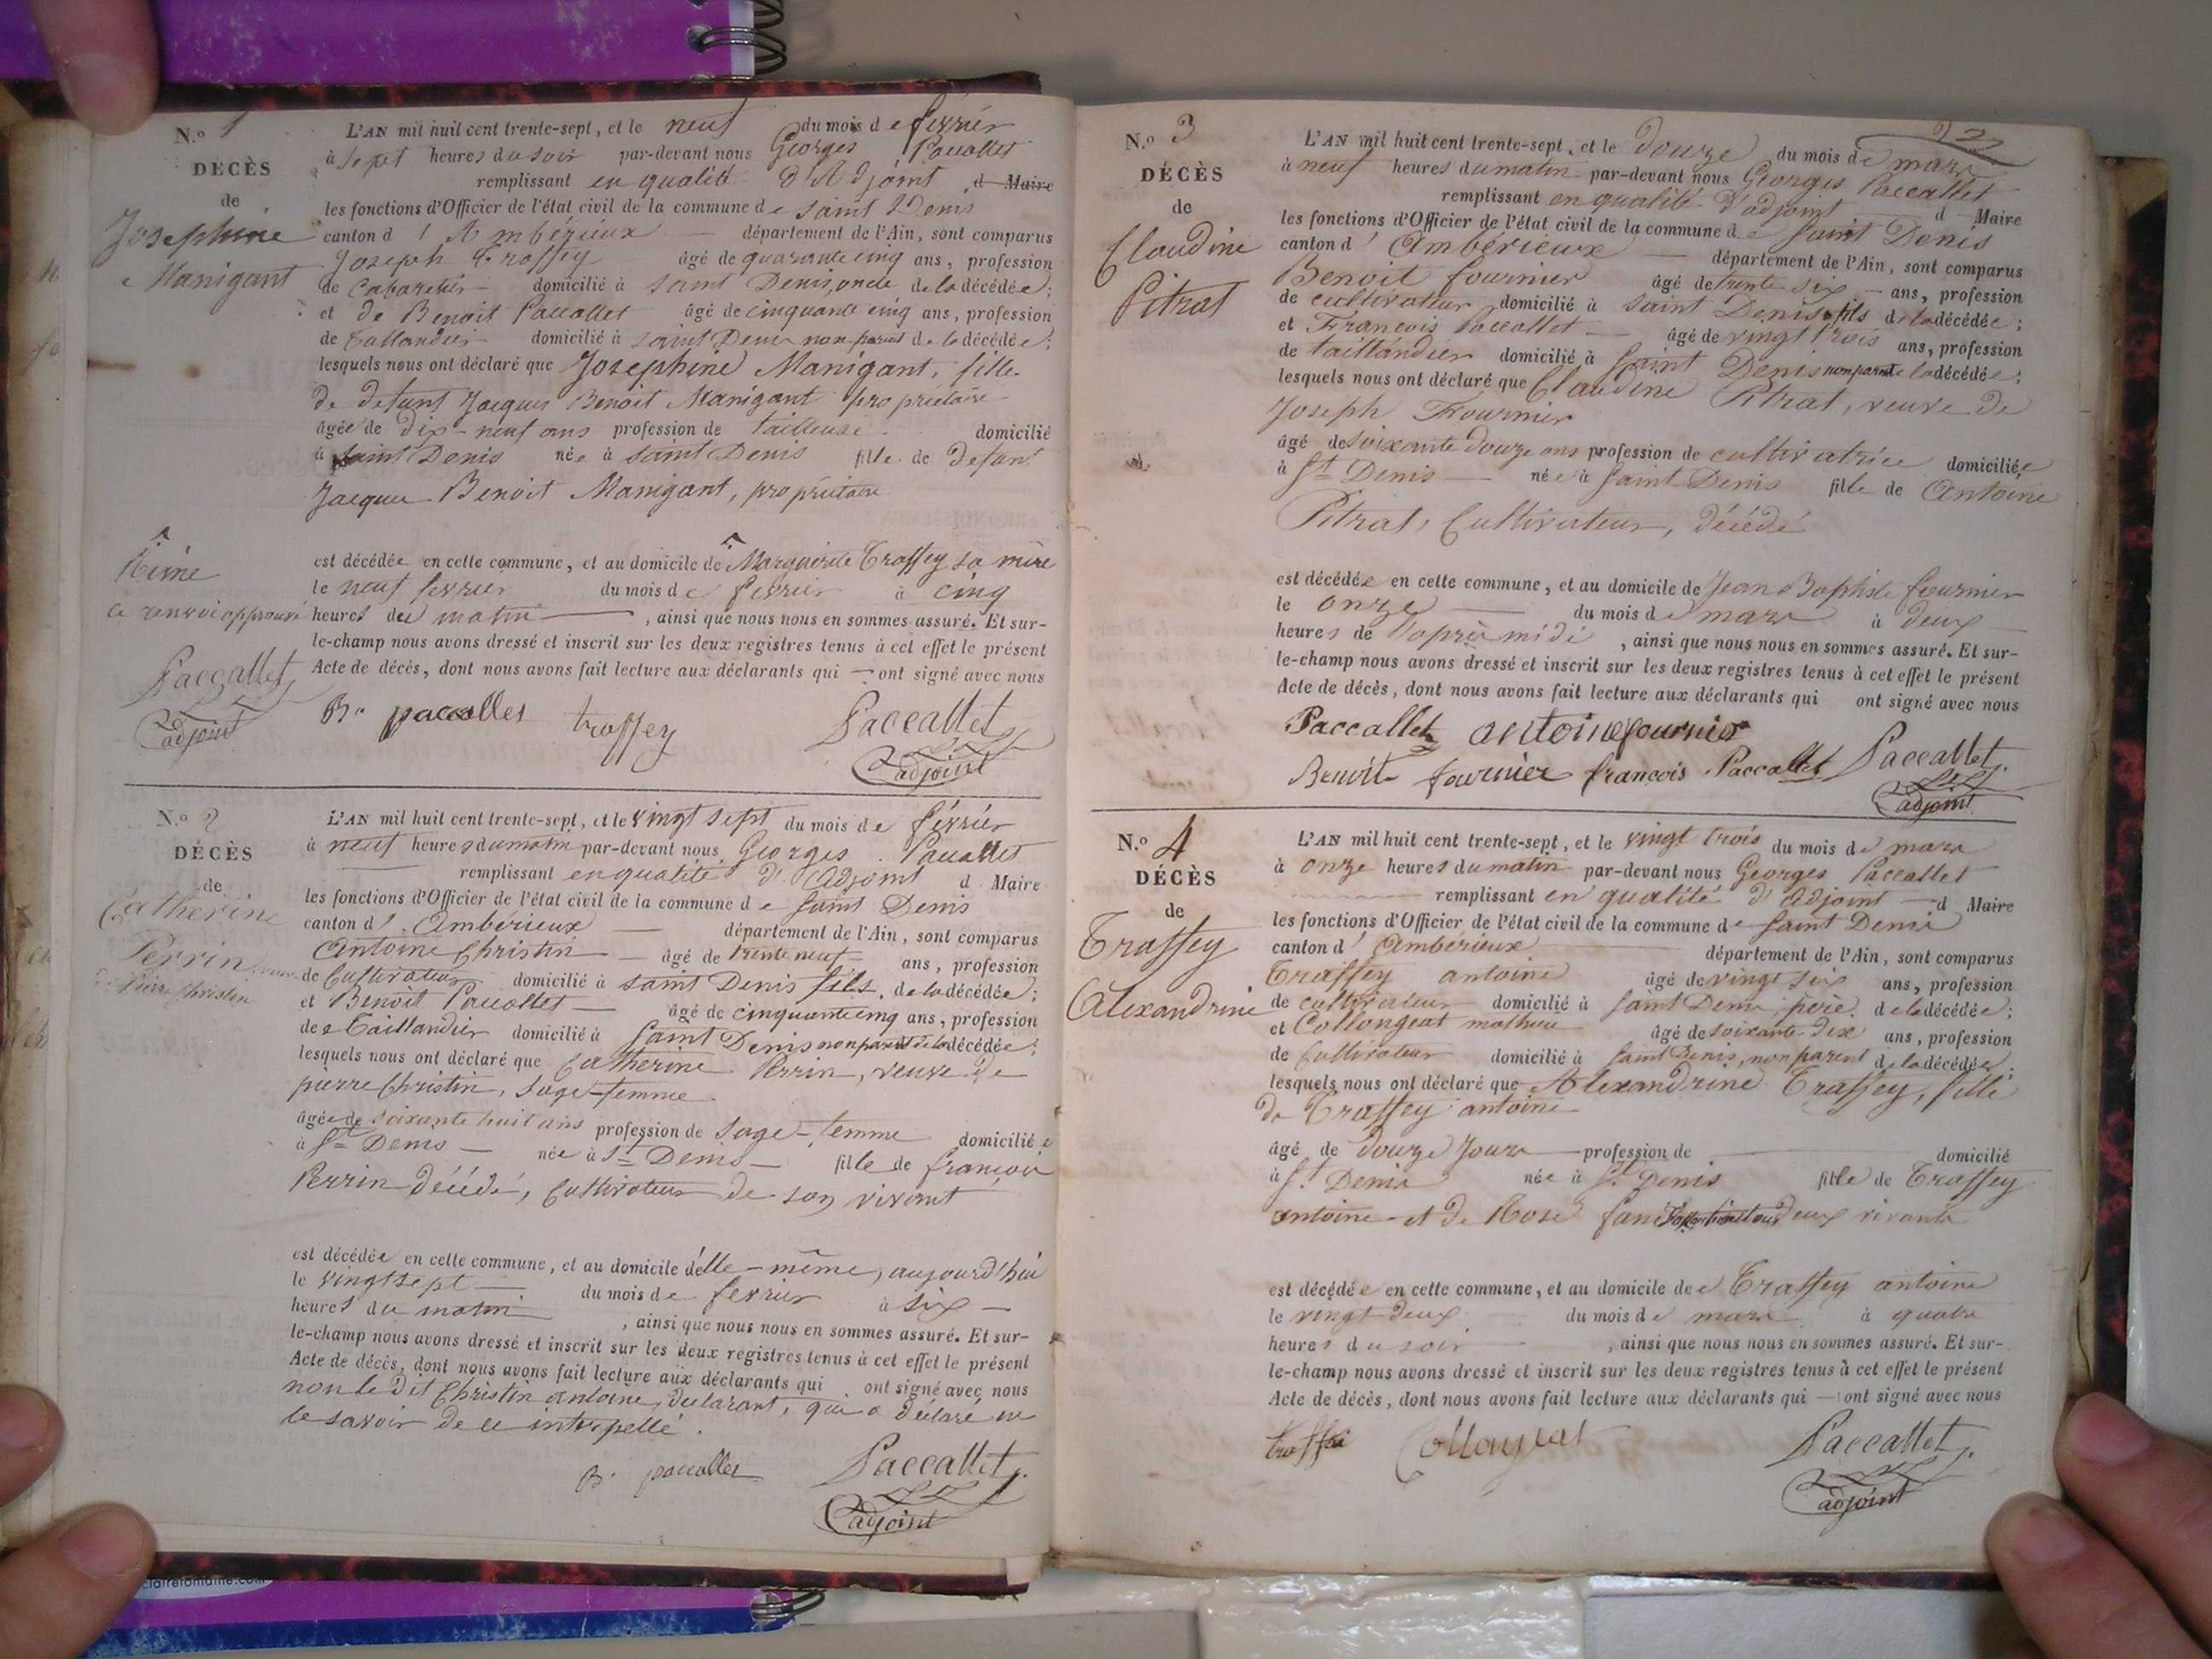 N.o 1
DÉCÈS
de
Josephine
Manigant
L'AN mil huit cent trente-sept, et le neuf du mois de février
à sept heures du soir par-devant nous Georges Paccallet
remplissant en qualité d'Adjoint d Maire
les fonctions d'Officier de l'état civil de la commune de saint Denis
canton d'Ambérieux département de l'Ain, sont comparus
Joseph Traffey âgé de quarante cinq ans, profession
de Cabaretier domicilié à saint Denis, oncle de la décédée;
et de Benoit Paccallet âgé de cinquante cinq ans, profession
de taillandier domicilié à saint Denis non parent de la décédée;
lesquels nous ont déclaré que Josephine Manigant, fille
de defunt Jacques Benoit Manigant propriétaire
âgée de dix-neuf ans profession de tailleuse domicilié
à saint Denis née à saint Denis fille de defunt
Jacques Benoit Manigant, propriétaire
est décédée en cette commune, et au domicile de Marguerite Traffey sa mère
le neuf fevrier du mois de fevrier à cinq
heures du matin, ainsi que nous nous en sommes assuré. Et sur-
le-champ nous avons dressé et inscrit sur les deux registres tenus à cet effet le présent
Acte de décès, dont nous avons fait lecture aux déclarants qui ont signé avec nous
ce renvoi approuvé
Paccallet
adjoint
B. paccalles traffey Paccallet
adjoint
N.o 2
DÉCÈS
de
Catherine
Perrin, veuve
de Pierre Christin
L'AN mil huit cent trente-sept, et le vingt sept du mois de février
à neuf heures du matin par-devant nous Georges Paccallet
remplissant en qualité d'Adjoint d Maire
les fonctions d'Officier de l'état civil de la commune de saint Denis
canton d'Ambérieux département de l'Ain, sont comparus
Antoine Christin âgé de trente neuf ans, profession
de Cultivateur domicilié à saint Denis fils de la décédée;
et Benoit Paccallet âgé de cinquante cinq ans, profession
de Taillandier domicilié à saint Denis non parent de la décédée;
lesquels nous ont déclaré que Catherine Perrin, veuve de
pierre Christin, sage-femme
âgée de soixante huit ans profession de sage-femme domiciliée
à St Denis née à St Denis fille de françois
Perrin décédé, Cultivateur de son vivant
est décédée en cette commune, et au domicile d'elle-même, aujourd'hui
le vingt sept du mois de fevrier à six
heures du matin, ainsi que nous nous en sommes assuré. Et sur-
le-champ nous avons dressé et inscrit sur les deux registres tenus à cet effet le présent
Acte de décès, dont nous avons fait lecture aux déclarants qui ont signé avec nous
non le dit Christin antoine, declarant, qui a déclaré ne
le savoir de ce interpellé.
B. paccalles Paccallet
adjoint
22
N.o 3
DÉCÈS
de
Claudine
Pitrat
L'AN mil huit cent trente-sept, et le douze du mois de mars
à neuf heures du matin par-devant nous Georges Paccallet
remplissant en qualité d'adjoint d Maire
les fonctions d'Officier de l'état civil de la commune de saint Denis
canton d'Ambérieux département de l'Ain, sont comparus
Benoit fournier âgé de trente six ans, profession
de cultivateur domicilié à saint Denis fils de la décédée;
et François Paccallet âgé de vingt trois ans, profession
de taillandier domicilié à saint Denis non parent de la décédée;
lesquels nous ont déclaré que Claudine Pitrat, veuve de
Joseph Fournier
âgé de soixante douze ans profession de cultivatrice domiciliée
à St Denis née à saint Denis fille de Antoine
Pitrat, Cultivateur, décédé
est décédée en cette commune, et au domicile de Jean Baptiste fournier
le onze du mois de mars à deux
heures de l'après midi, ainsi que nous nous en sommes assuré. Et sur-
le-champ nous avons dressé et inscrit sur les deux registres tenus à cet effet le présent
Acte de décès, dont nous avons fait lecture aux déclarants qui ont signé avec nous
Paccallet antoine fournier
Benoit fournier françois Paccallet Paccallet
adjoint
N.o 4
DÉCÈS
de
Traffey
Alexandrine
L'AN mil huit cent trente-sept, et le vingt trois du mois de mars
à onze heures du matin par-devant nous Georges Paccallet
remplissant en qualité d'Adjoint d Maire
les fonctions d'Officier de l'état civil de la commune de saint Denis
canton d'Ambérieux département de l'Ain, sont comparus
Traffey antoine âgé de vingt six ans, profession
de cultivateur domicilié à saint Denis, père de la décédée;
et Collongeat mathieu âgé de soixante dix ans, profession
de Cultivateur domicilié à saint Denis, non parent de la décédée;
lesquels nous ont déclaré que Alexandrine Traffey, fille
de Traffey antoine
âgé de douze jours profession de domicilié
à St. Denis née à St. Denis fille de Traffey
antoine et de Rose deux vivants
est décédée en cette commune, et au domicile de Traffey antoine
le vingt deux du mois de mars à quatre
heures du soir, ainsi que nous nous en sommes assuré. Et sur-
le-champ nous avons dressé et inscrit sur les deux registres tenus à cet effet le présent
Acte de décès, dont nous avons fait lecture aux déclarants qui ont signé avec nous
Collongeat Paccallet
adjoint